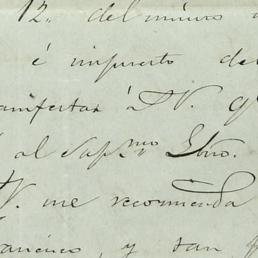 12, del mismo
é impuesto de
manifestar á S.V. q
al Sup.mo Gbno.
V. me recomienda
Francisco, y tan